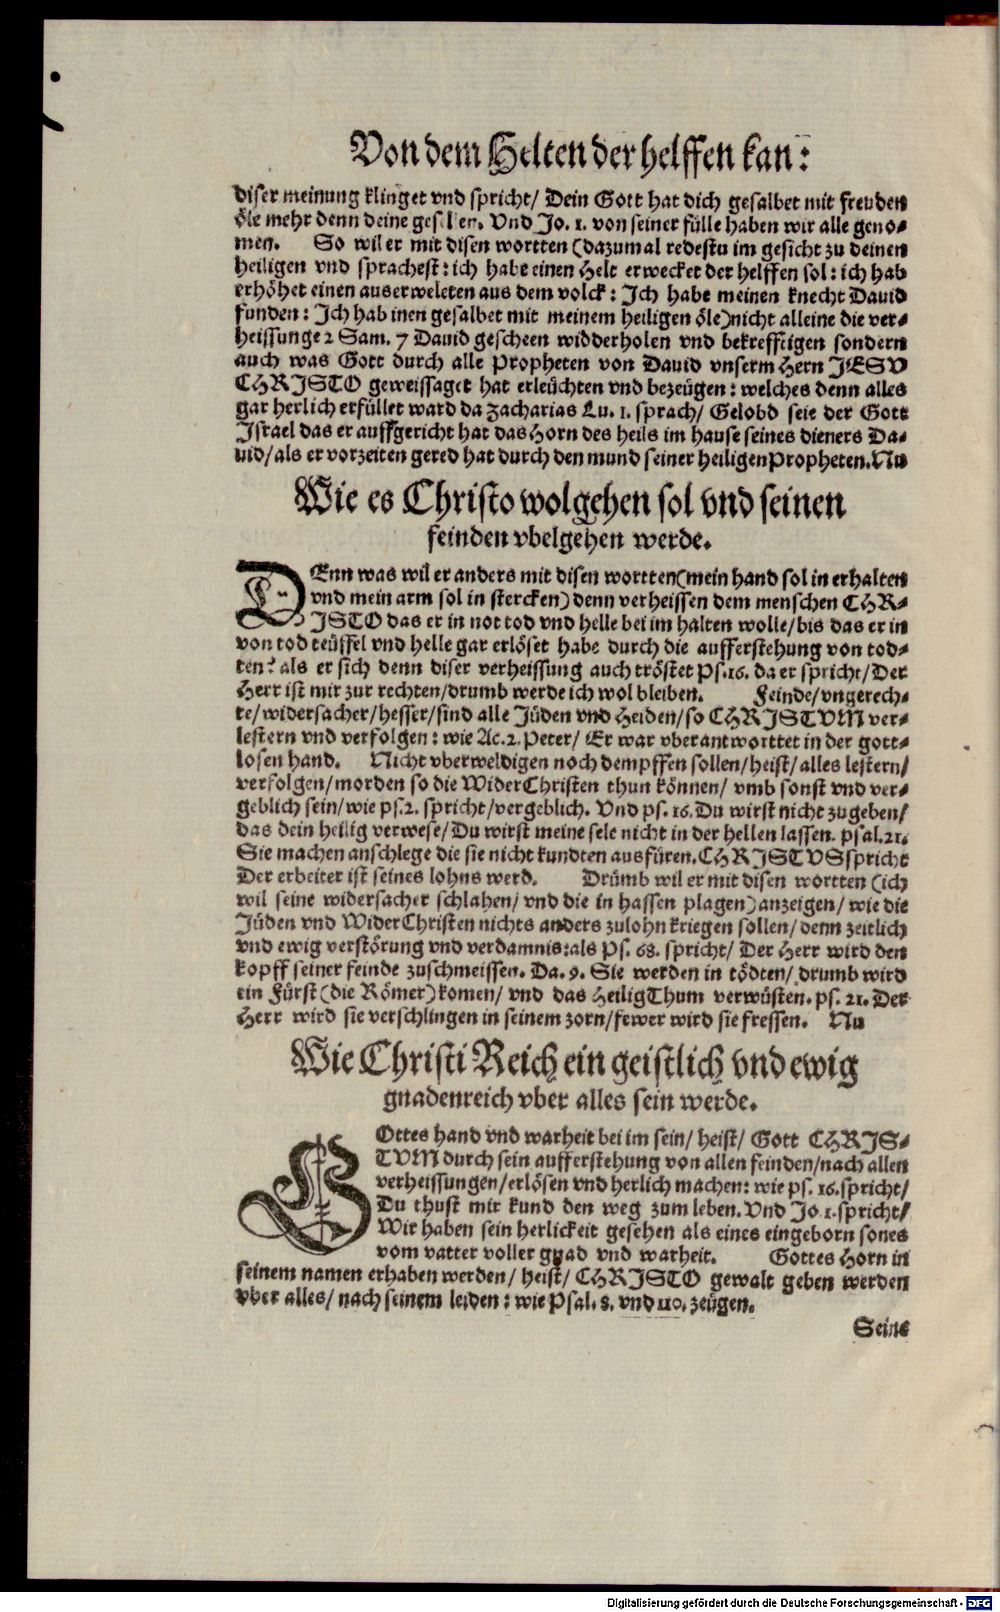 Von dem Helten der helffen kan:
diser meinung klinget vnd spricht/ Dein Gott hat dich gesalbet mit freuden
öle mehr denn deine gesellen. Vnd Jo. 1. von seiner fülle haben wir alle geno⸗
men. So wil er mit disen wortten (dazumal redestu im gesicht zu deinen
heiligen vnd sprachest: ich habe einen Helt erwecket der helffen sol: ich hab
erhöhet einen auserweleten aus dem volck: Ich habe meinen knecht Dauid
funden: Ich hab inen gesalbet mit meinem heiligen öle) nicht alleine die ver⸗
heissunge 2 Sam. 7 Dauid gescheen widderholen vnd bekrefftigen sondern
auch was Gott durch alle Propheten von Dauid vnserm Hern JESV
CHRISTO geweissaget hat erleüchten vnd bezeügen: welches denn alles
gar herlich erfüllet ward da Zacharias Lu. 1. sprach/ Gelobd seie der Gott
Israel das er auffgericht hat das Horn des heils im hause seines dieners Da⸗
uid/ als er vorzeiten gered hat durch den mund seiner heiligen Propheten. Nu
Wie es Christo wolgehen sol vnd seinen
feinden vbelgehen werde.
DEnn was wil er anders mit disen wortten (mein hand sol in erhalten
vnd mein arm sol in stercken) denn verheissen dem menschen CHR⸗
ISTO das er in not tod vnd helle bei im halten wolle/ bis das er in
von tod teüffel vnd helle gar erlöset habe durch die aufferstehung von tod⸗
ten? als er sich denn diser verheissung auch tröstet Ps. 16. da er spricht/ Der
Herr ist mir zur rechten/ drumb werde ich wol bleiben. Feinde/ vngerech⸗
te/ widersacher/ hesser/ sind alle Jüden vnd Heiden/ so CHRISTVM ver⸗
lestern vnd verfolgen: wie Ac. 2. Peter/ Er war vberantworttet in der gott⸗
losen hand. Nicht vberweldigen noch dempffen sollen/ heist/ alles lestern/
verfolgen/ morden so die WiderChristen thun können/ vmb sonst vnd ver⸗
geblich sein/ wie ps. 2. spricht/ vergeblich. Vnd ps. 16. Du wirst nicht zugeben/
das dein heilig verwese/ Du wirst meine sele nicht in der hellen lassen. psal. 21.
Sie machen anschlege die sie nicht kundten ausfüren. CHRISTVS spricht
Der erbeiter ist seines lohns werd. Drümb wil er mit disen wortten (ich
wil seine widersacher schlahen/ vnd die in hassen plagen) anzeigen/ wie die
Jüden vnd WiderChristen nichts anders zulohn kriegen sollen/ denn zeitlich
vnd ewig verstörung vnd verdamnis: als Ps. 68. spricht/ Der Herr wird den
kopff seiner feinde zuschmeissen. Da. 9. Sie werden in tödten/ drumb wird
ein Fürst (die Römer) komen/ vnd das HeiligThum verwüsten. ps. 21. Der
Herr wird sie verschlingen in seinem zorn/ fewer wird sie fressen. Nu
Wie Christi Reich ein geistlich vnd ewig
gnadenreich vber alles sein werde.
GOttes hand vnd warheit bei im sein/ heist/ Gott CHRIS⸗
TVM durch sein aufferstehung von allen feinden/ nach allen
verheissungen/ erlösen vnd herlich machen: wie ps. 16. spricht/
Du thust mir kund den weg zum leben. Vnd Jo. 1. spricht/
Wir haben sein herlickeit gesehen als eines eingeborn sones
vom vatter voller gnad vnd warheit. Gottes Horn in
seinem namen erhaben werden/ heist/ CHRISTO gewalt geben werden
vber alles/ nach seinem leiden: wie Psal. 8. vnd 110. zeügen.
Seine
Digitalisierung gefördert durch die Deutsche Forschungsgemeinschaft - DFG